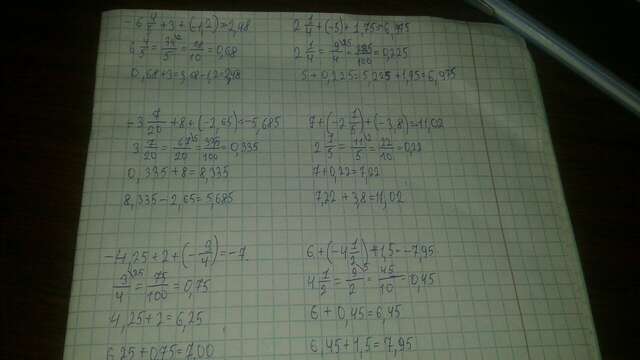 -6 4/5 + 3 + (-1,2) = 2,48
6 4/5 = 34/5 = 68/10 = 0,68
0,68+3=3,68-1,2=2,48
2 1/4 + (-5) + 1,75 = 6,975
2 1/4 = 9/4 = 225/100 = 0,225
5 + 0,225 = 5,225 + 1,75 = 6,975
-3 7/20 + 8 + (-2,65) = -5,685
3 7/20 = 67/20 = 335/100 = 0,335
0,335 + 8 = 8,335
8,335 - 2,65 = 5,685
7 + (-2 1/5) + (-3,8) = -11,02
= 11/5 = 22/10 = 0,22
7 + 0,22 = 7,22
7,22 + 3,8 = 11,02
-4,25 + 2 + (-3/4) = -7
3/4 = 75/100 = 0,75
4,25 + 2 = 6,25
6,25 + 0,75 = 7,00
6 + (-4 1/2) + 1,5 = -7,95
4 1/2 = 9/2 = 45/10 = 0,45
6 + 0,45 = 6,45
6,45 + 1,5 = 7,95